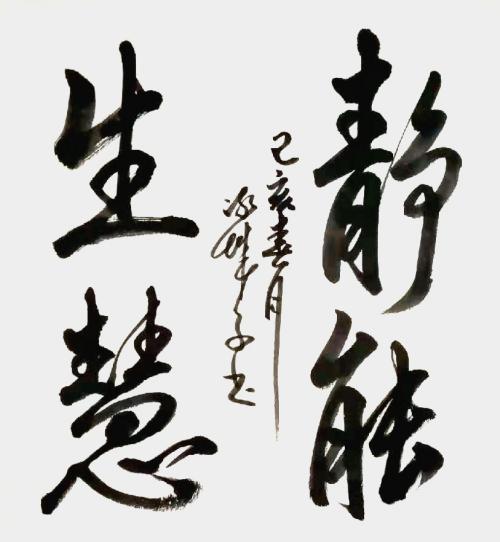 静能
生慧
己亥春月